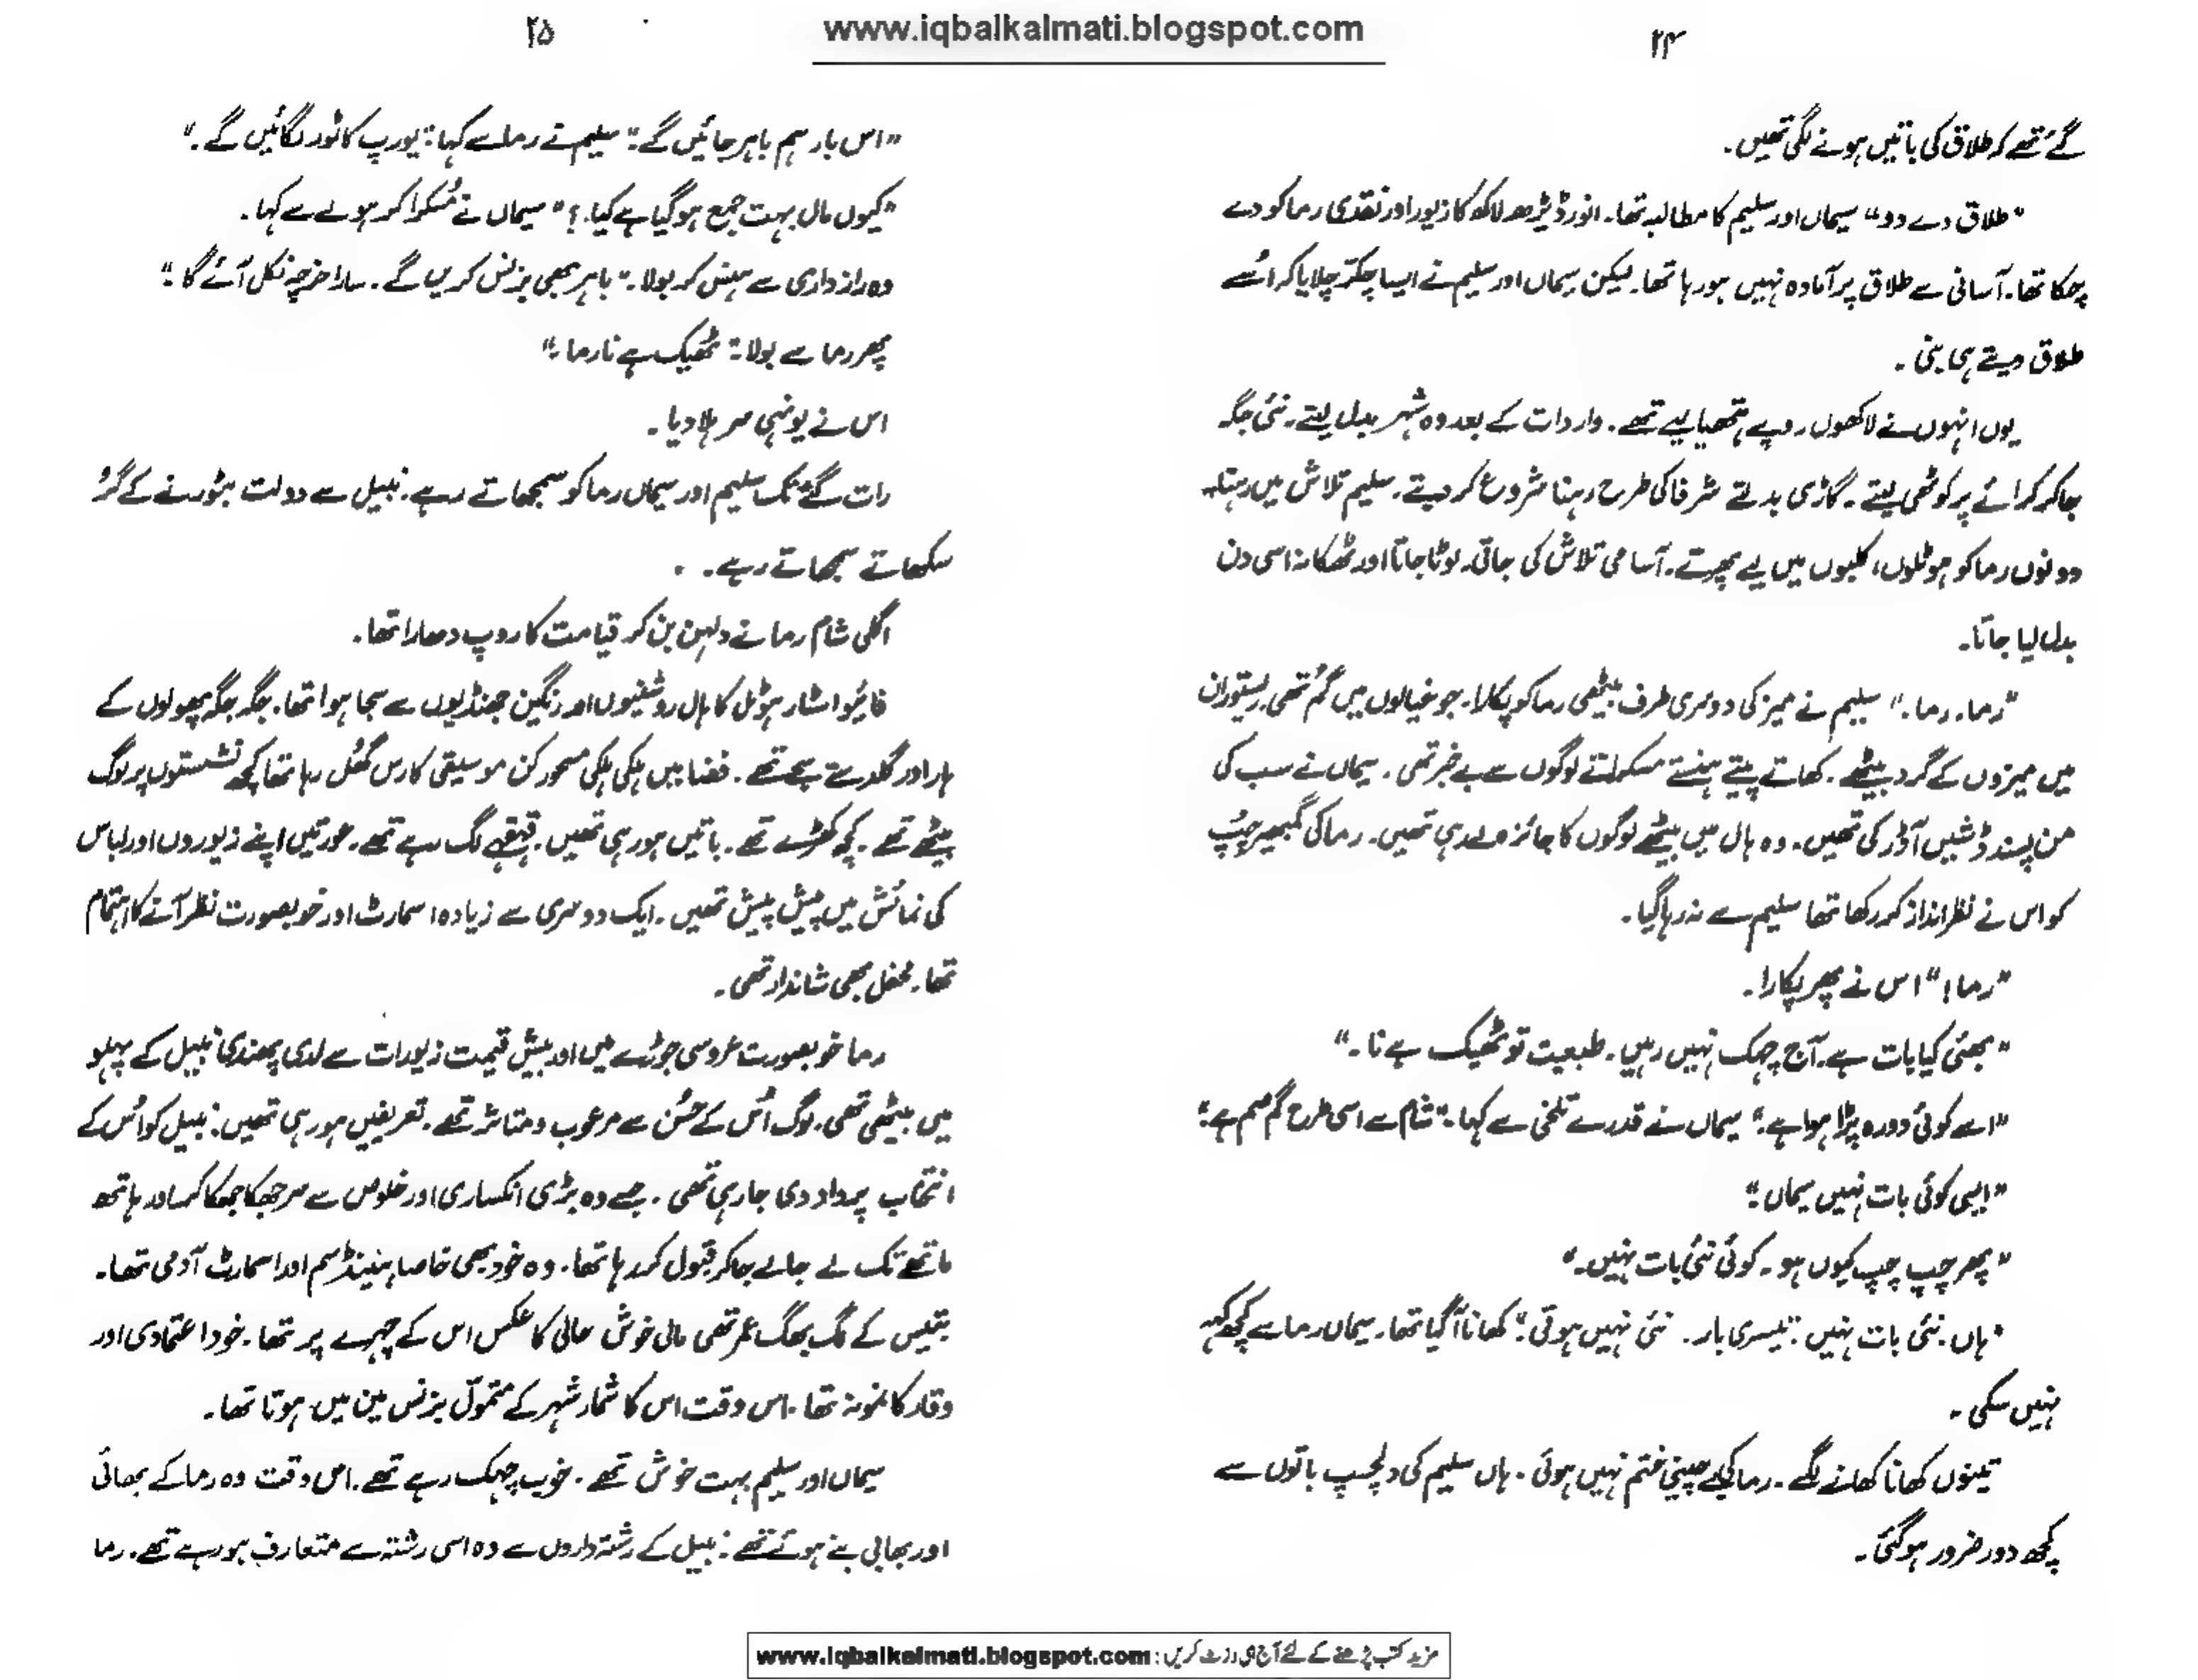 www.iqbalkalmati.blogspot.com
۲۴
گئے تھے کہ طلاق کی باتیں ہونے لگی تھیں۔
"طلاق دے دو" سیماں اور سلیم کا مطالبہ تھا۔ انور ڈیڑھ لاکھ کا زیور اور نقدی رما کو دے
چکا تھا۔ آسانی سے طلاق پر آمادہ نہیں ہو رہا تھا۔ لیکن سیماں اور سلیم نے ایسا چکر چلایا کہ اُسے
طلاق دیتے ہی بنی۔
یوں انہوں نے لاکھوں روپے ہتھیا لیے تھے۔ واردات کے بعد وہ شہر بدل لیتے۔ نئی جگہ
جا کر کرائے پر کوٹھی لیتے۔ گاڑی بدلتے شرفا کی طرح رہنا شروع کر دیتے۔ سلیم تلاش میں رہتا۔
دونوں رما کو ہوٹلوں، کلبوں میں لیے پھرتے۔ آسامی تلاش کی جاتی۔ لوٹا جاتا اور ٹھکانہ اسی دن
بدل لیا جاتا۔
"رما۔ رما۔" سلیم نے میز کی دوسری طرف بیٹھی رما کو پکارا۔ جو خیالوں میں گم تھی ریستوران
میں میزوں کے گرد بیٹھے۔ کھاتے پیتے ہنستے مسکراتے لوگوں سے بے خبر تھی۔ سیماں نے سب کی
من پسند ڈشیں آڈر کی تھیں۔ وہ ہال میں بیٹھے لوگوں کا جائزہ لے رہی تھیں۔ رما کی گمبھیر چُپ
کو اس نے نظر انداز کر رکھا تھا سلیم سے نہ رہا گیا۔
"رما!" اس نے پھر پکارا۔
"بھئی کیا بات ہے۔ آج چہک نہیں رہیں۔ طبیعت تو ٹھیک ہے نا۔"
"اسے کوئی دورہ پڑا ہوا ہے۔" سیماں نے قدرے تلخی سے کہا۔ "شام سے اسی طرح گم صم ہے۔"
"ایسی کوئی بات نہیں سیماں۔"
"پھر چپ چپ کیوں ہو۔ کوئی نئی بات نہیں۔"
"ہاں۔ نئی بات نہیں۔ تیسری بار۔ نئی نہیں ہوتی۔" کھانا آگیا تھا۔ سیماں رما سے کچھ کہہ
نہیں سکی۔
تینوں کھانا کھانے لگے۔ رما کی بے چینی ختم نہیں ہوئی۔ ہاں سلیم کی دلچسپ باتوں سے
کچھ دور ضرور ہو گئی۔
۲۵
"اس بار ہم باہر جائیں گے۔" سلیم نے رما سے کہا: "یورپ کا ٹور لگائیں گے۔"
"کیوں مال بہت جمع ہو گیا ہے کیا۔؟" سیماں نے مُسکرا کر ہولے سے کہا۔
وہ رازداری سے ہنس کر بولا۔ "باہر بھی بزنس کریں گے۔ سارا خرچہ نکل آئے گا۔"
پھر رما سے بولا۔ "ٹھیک ہے نا رما۔"
اس نے یونہی سر ہلا دیا۔
رات گئے تک سلیم اور سیماں رما کو سمجھاتے رہے۔ نبیل سے دولت بٹورنے کے گُر
سکھاتے سمجھاتے رہے۔
اگلی شام رما نے دلہن بن کر قیامت کا روپ دھارا تھا۔
فائیو اسٹار ہوٹل کا ہال روشنیوں اور رنگین جھنڈیوں سے سجا ہوا تھا۔ جگہ جگہ پھولوں کے
ہار اور گلدستے سجے تھے۔ فضا میں ہلکی ہلکی مسحور کن موسیقی کا رس گھل رہا تھا کچھ نشستوں پر لوگ
بیٹھے تھے۔ کچھ کھڑے تھے۔ باتیں ہو رہی تھیں۔ قہقہے لگ رہے تھے۔ عورتیں اپنے زیوروں اور لباس
کی نمائش میں پیش پیش تھیں۔ ایک دوسری سے زیادہ اسمارٹ اور خوبصورت نظر آنے کا اہتمام
تھا۔ محفل بھی شاندار تھی۔
رما خوبصورت عروسی جوڑے میں اور بیش قیمت زیورات سے لدی پھندی نبیل کے پہلو
میں بیٹھی تھی۔ لوگ اُس کے حُسن سے مرعوب و متاثر تھے۔ تعریفیں ہو رہی تھیں۔ نبیل کو اُس کے
انتخاب پر داد دی جا رہی تھی۔ جسے وہ بڑی انکساری اور خلوص سے سر جھکا جھکا کر اور ہاتھ
ماتھے تک لے جا لے جا کر قبول کر رہا تھا۔ وہ خود بھی خاصا ہینڈسم اور اسمارٹ آدمی تھا۔
بتیس کے لگ بھگ عمر تھی مالی خوش حالی کا عکس اس کے چہرے پر تھا۔ خود اعتمادی اور
وقار کا نمونہ تھا۔ اس وقت اس کا شمار شہر کے متمول بزنس مین میں ہوتا تھا۔
سیماں اور سلیم بہت خوش تھے۔ خوب چہک رہے تھے۔ اس وقت وہ رما کے بھائی
اور بھابی بنے ہوئے تھے۔ نبیل کے رشتہ داروں سے وہ اسی رشتہ سے متعارف ہو رہے تھے۔ رما
مزید کتب پڑھنے کے لئے آج ہی وزٹ کریں: www.iqbalkalmati.blogspot.com